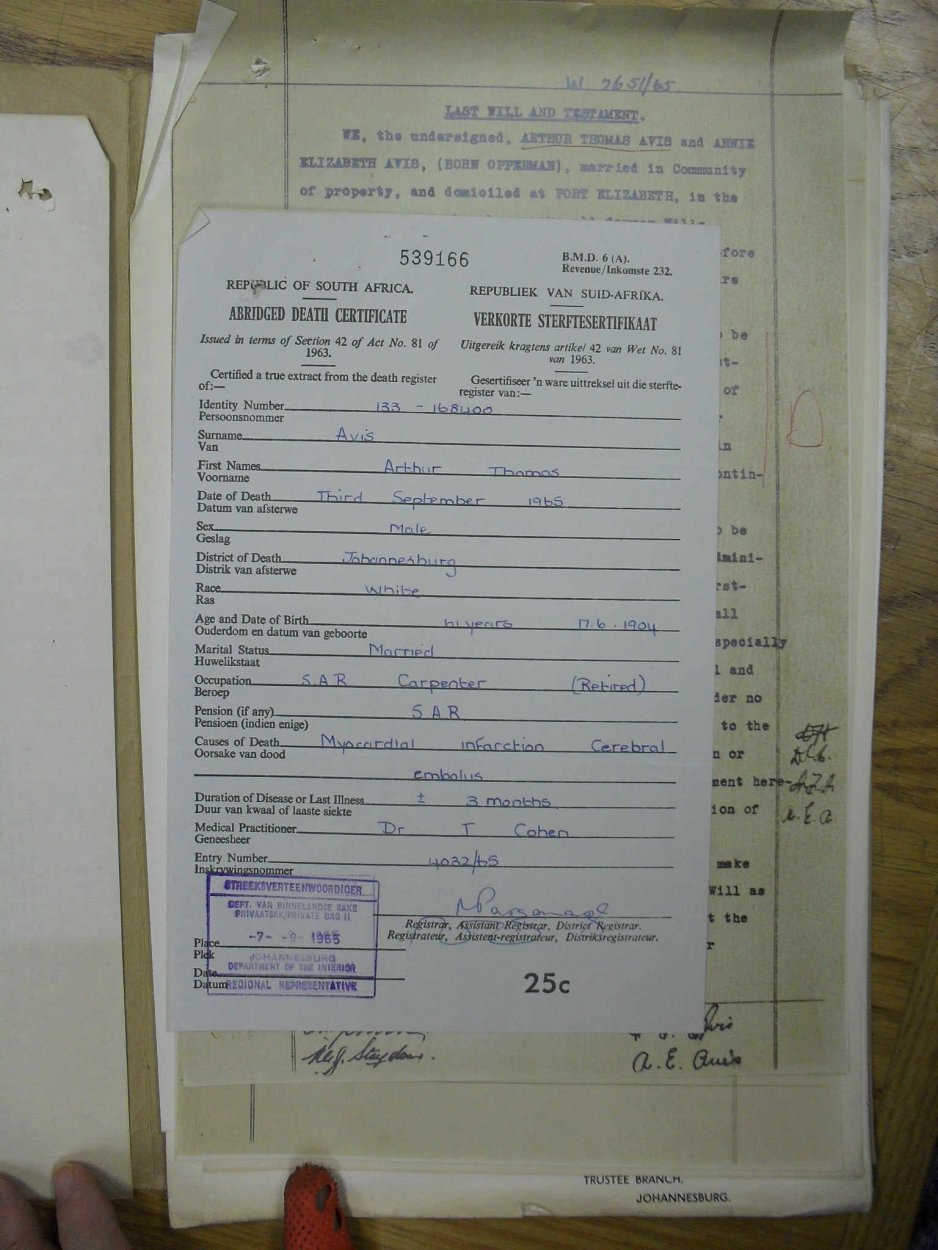 W 7651/65
LAST WILL AND TESTAMENT.
WE, the undersigned, ARTHUR THOMAS AVIS and ANNIE
ELIZABETH AVIS, (BORN OPPERMAN), married in Community
of property, and domiciled at PORT ELIZABETH, in the
539166
B.M.D. 6 (A).
Revenue/Inkomste 232.
REPUBLIC OF SOUTH AFRICA.
REPUBLIEK VAN SUID-AFRIKA.
ABRIDGED DEATH CERTIFICATE
VERKORTE STERFTESERTIFIKAAT
Issued in terms of Section 42 of Act No. 81 of
1963.
Uitgereik kragtens artikel 42 van Wet No. 81
van 1963.
Certified a true extract from the death register
of:—
Gesertifiseer 'n ware uittreksel uit die sterfte-
register van:—
Identity Number 133 - 168400
Persoonsnommer
Surname Avis
Van
First Names Arthur Thomas
Voorname
Date of Death Third September 1965
Datum van afsterwe
Sex Male
Geslag
District of Death Johannesburg
Distrik van afsterwe
Race White
Ras
Age and Date of Birth 61 years 17.6.1904
Ouderdom en datum van geboorte
Marital Status Married
Huwelikstaat
Occupation S.A.R Carpenter (Retired)
Beroep
Pension (if any) S A R
Pensioen (indien enige)
Causes of Death Myocardial infarction Cerebral
Oorsake van dood
embolus
Duration of Disease or Last Illness ± 3 months
Duur van kwaal of laaste siekte
Medical Practitioner Dr T Cohen
Geneesheer
Entry Number 4032/65
Inskrywingsnommer
STREEKSVERTEENWOORDIGER
DEPT. VAN BINNELANDSE SAKE
PRIVAATSAK/PRIVATE BAG 11
-7- -9- 1965
JOHANNESBURG
DEPARTMENT OF THE INTERIOR
REGIONAL REPRESENTATIVE
Registrar, Assistant Registrar, District Registrar.
Registrateur, Assistent-registrateur, Distriksregistrateur.
Place
Plek
Date
Datum
25c
be
of
ontin-
be
all
specially
and
no
to the
or
ment here-
ion of
A.E.A.
make
Will as
the
A. E. Avis
TRUSTEE BRANCH.
JOHANNESBURG.